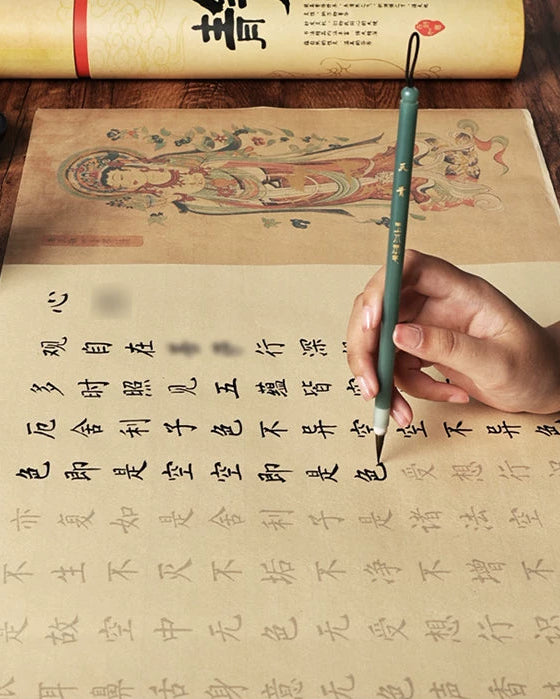 心
观自在行深
多时照见五蕴皆空
厄舍利子色不异空空不异色
色即是空空即是色受想行识
亦复如是舍利子是诸法空
不生不灭不垢不净不增不
是故空中无色无受想行识
耳鼻舌身意无色